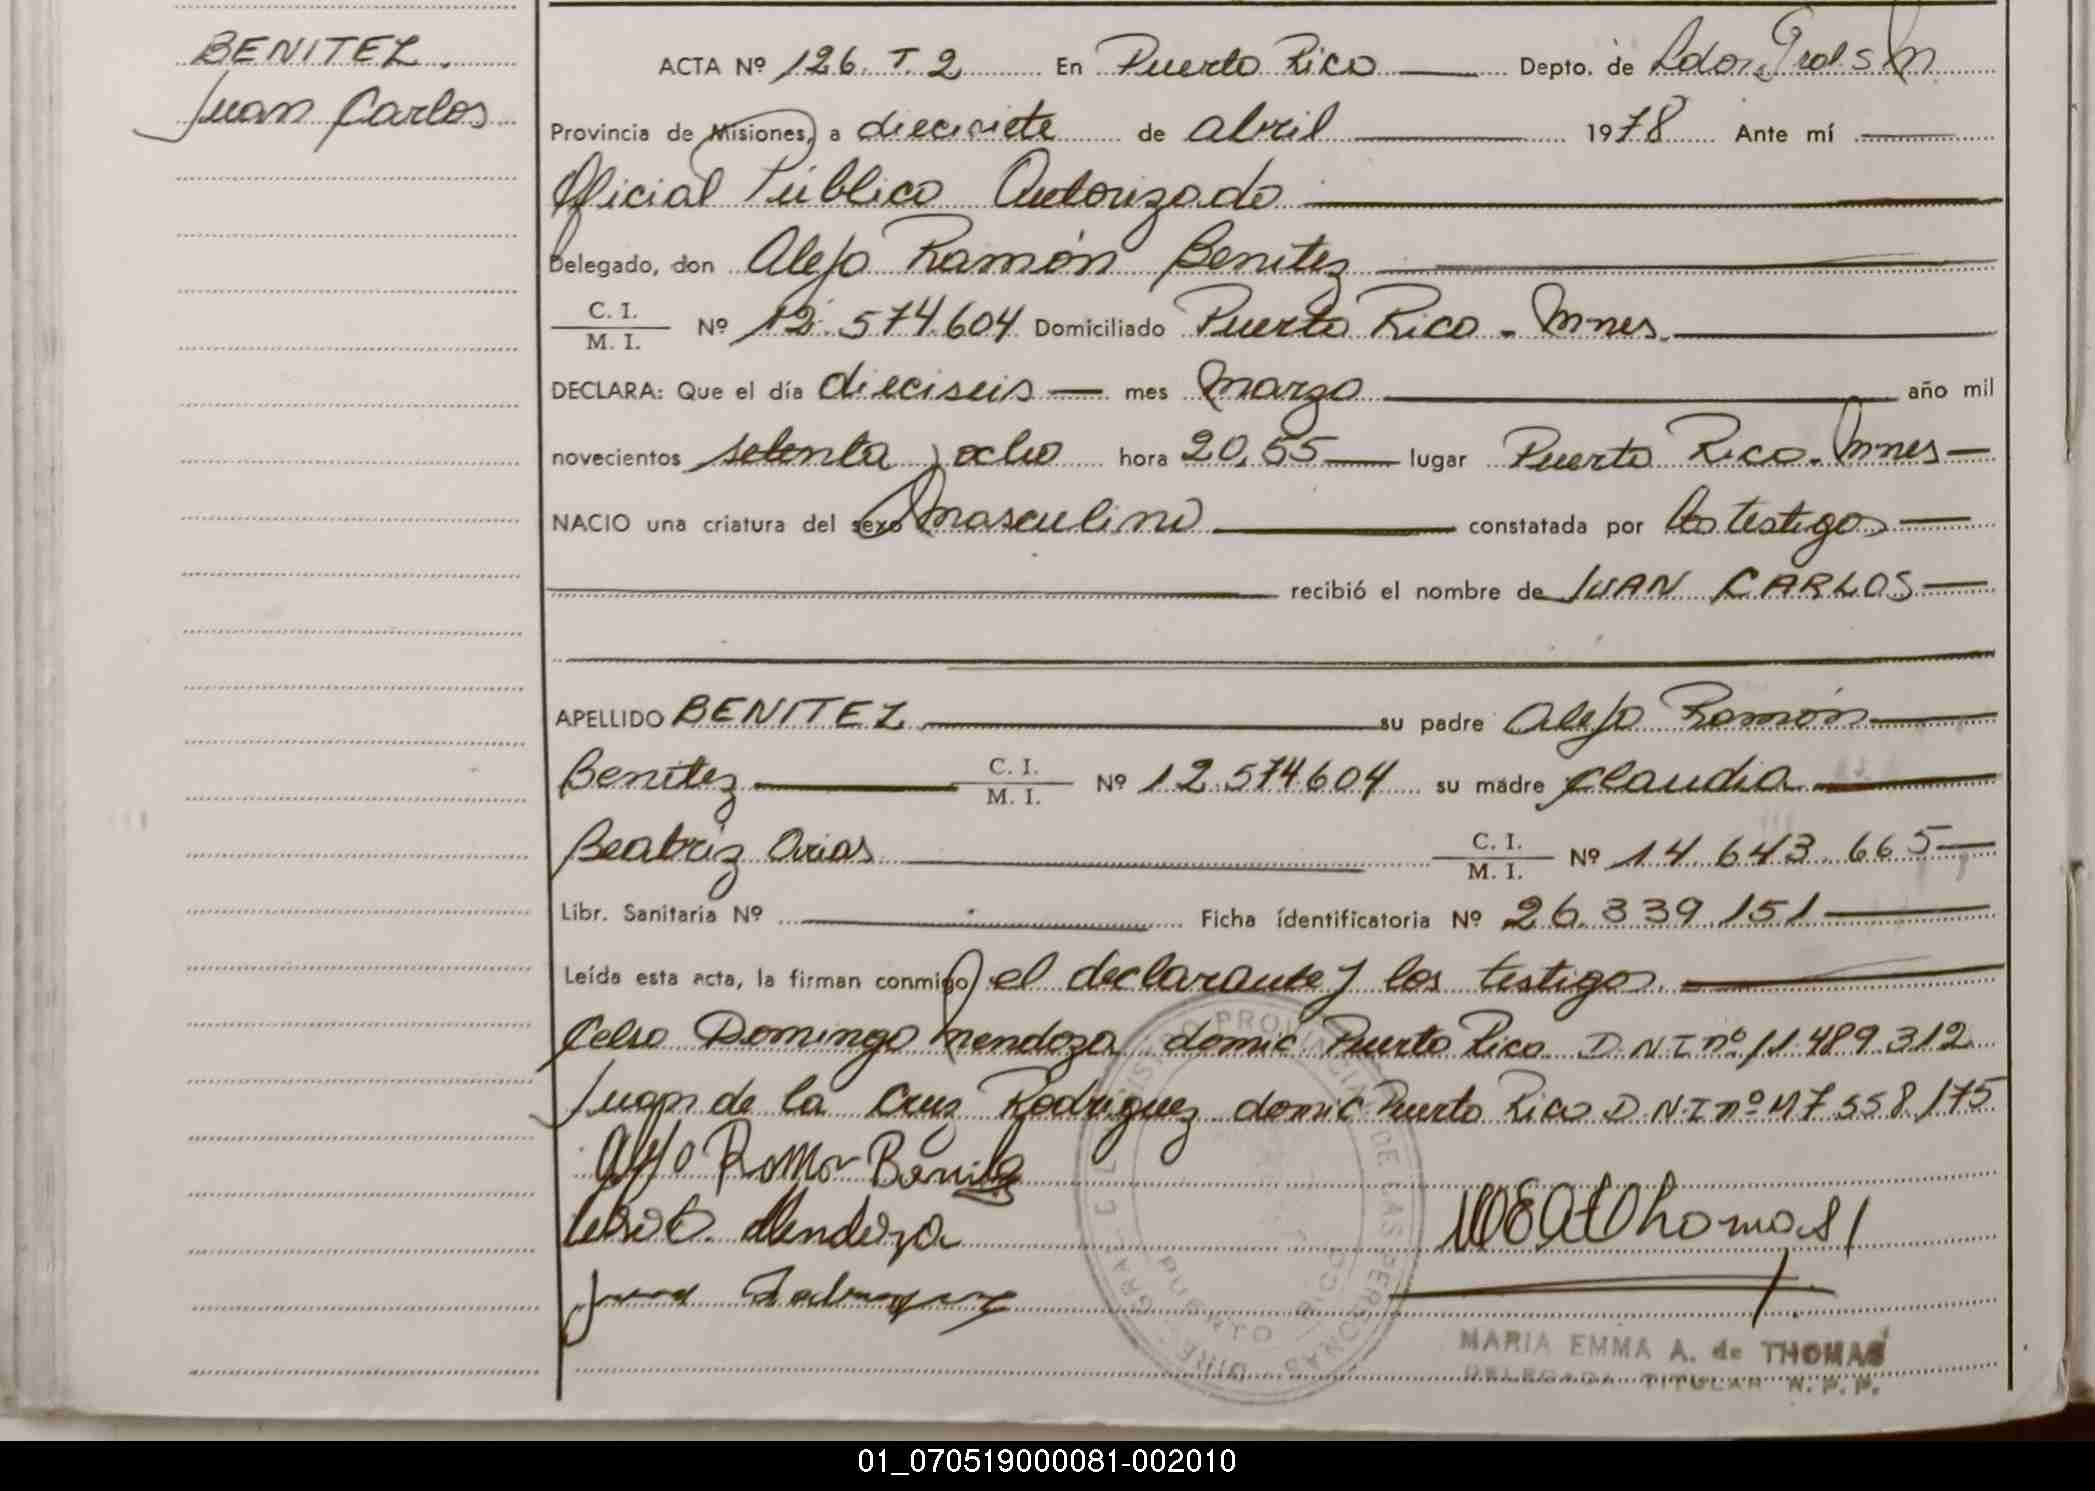 BENITEZ.
Juan Carlos
ACTA Nº 126. T. 2 En Puerto Rico Depto. de Ldor. Gral. S. M
Provincia de Misiones, a diecisiete de abril 1978 Ante mí
Oficial Público Autorizado
Delegado, don Alejo Ramón Benitez
C. I.
M. I. Nº 12.574.604 Domiciliado Puerto Rico - Mnes.
DECLARA: Que el día dieciseis mes marzo año mil
novecientos setenta y ocho hora 20,55 lugar Puerto Rico. Mnes
NACIO una criatura del sexo masculino constatada por los testigos
recibió el nombre de JUAN CARLOS
APELLIDO BENITEZ su padre Alejo Ramón
Benitez C. I. M. I. Nº 12.574.604 su madre Claudia
Beatriz Arias C. I. M. I. Nº 14.643.665
Libr. Sanitaria Nº Ficha identificatoria Nº 26.339.151
Leída esta acta, la firman conmigo el declarante y los testigos.
Celso Domingo Mendoza domic Puerto Rico D.N.I nº 11.489.312
Juan de la Cruz Rodriguez domic Puerto Rico D.N.I nº
Alejo Ramon Benitez
Mendoza
Juan
MARIA EMMA A. de THOMAS
DELEGADA TITULAR R. P. P.
REGISTRO PROVINCIAL DE LAS PERSONAS
PUERTO RICO
01_070519000081-002010